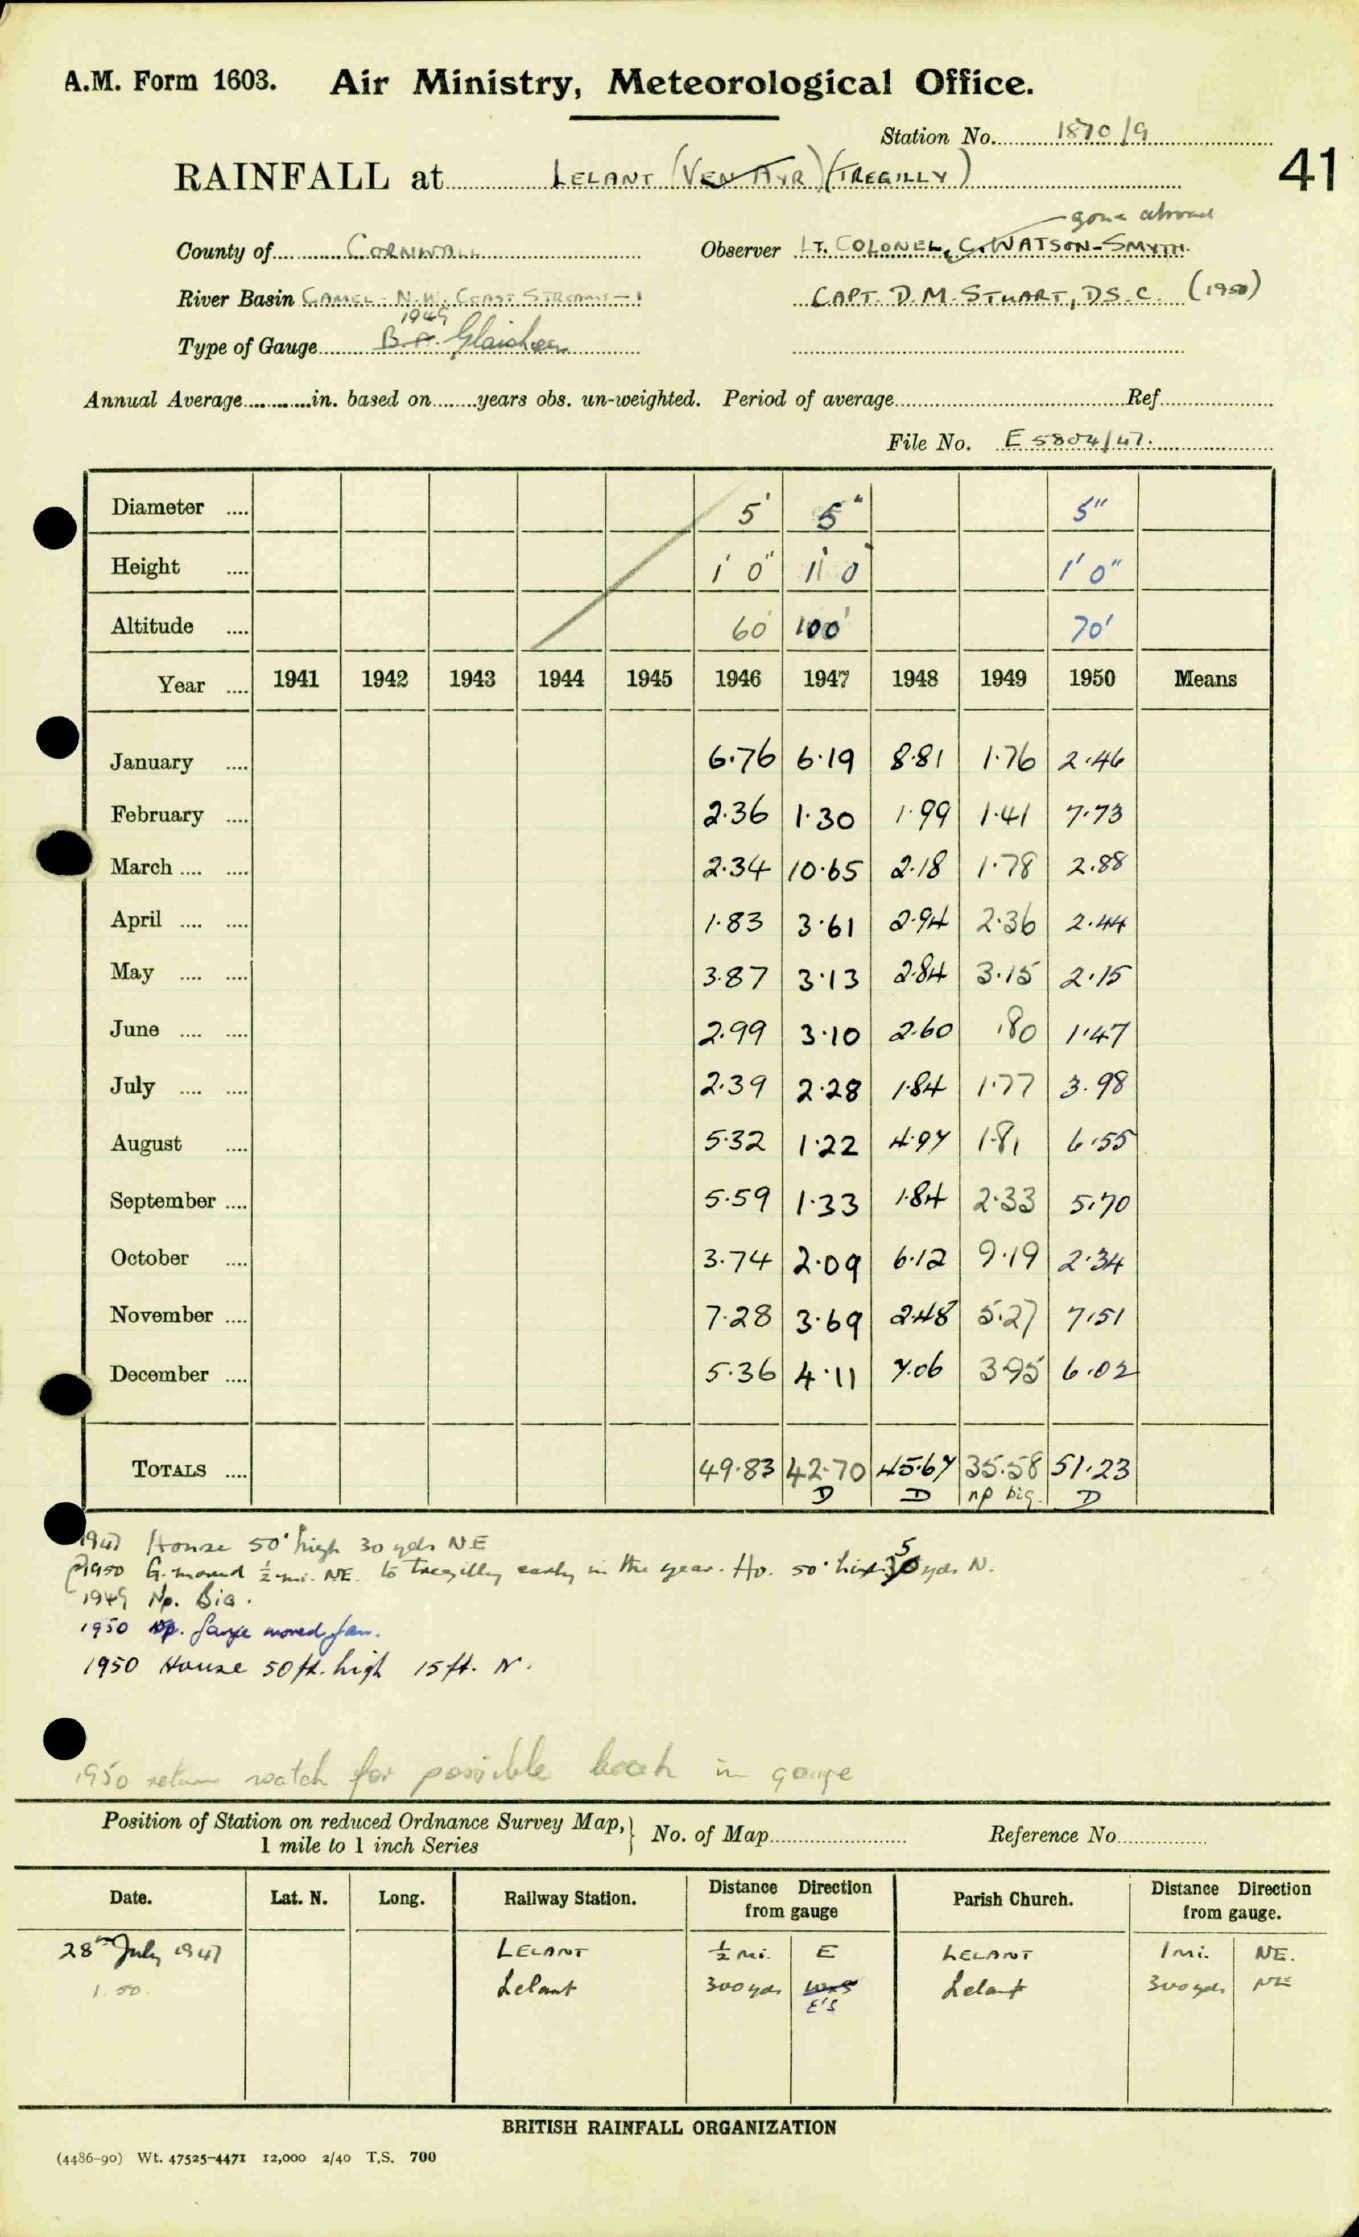 A.M. Form 1603. Air Ministry, Meteorological Office.
Station No. 1870/9
41
RAINFALL at LELANT (VEN AYR) (TREGILLY)
gone abroad
County of CORNWALL Observer LT. COLONEL C. WATSON-SMYTH.
River Basin CAMEL - N.W. COAST STREAMS - 1 CAPT. D. M. STUART, D.S.C. (1950)
1949
Type of Gauge Glaisher
Annual Average in. based on years obs. un-weighted. Period of average Ref
File No. E 5804/47.
Diameter .... 5' 5" 5"
Height .... 1' 0" 1' 0" 1' 0"
Altitude .... 60' 100' 70'
Year .... 1941 1942 1943 1944 1945 1946 1947 1948 1949 1950 Means
January .... 6.76 6.19 8.81 1.76 2.46
February .... 2.36 1.30 1.99 1.41 7.73
March .... .... 2.34 10.65 2.18 1.78 2.88
April .... .... 1.83 3.61 2.94 2.36 2.44
May .... .... 3.87 3.13 2.84 3.15 2.15
June .... .... 2.99 3.10 2.60 .80 1.47
July .... .... 2.39 2.28 1.84 1.77 3.98
August .... 5.32 1.22 4.97 1.81 6.55
September .... 5.59 1.33 1.84 2.33 5.70
October .... 3.74 2.09 6.12 9.19 2.34
November .... 7.28 3.69 2.48 5.27 7.51
December .... 5.36 4.11 7.06 3.95 6.02
TOTALS .... 49.83 42.70 45.67 35.58 51.23
D D np big. D
1947 House 50' high 30 yds NE
1950 G. moved ½ mi. NE. to Tregilly early in the year. Ho. 50' high 5 yds N.
1949 Np. Big.
1950 Np. Gauge moved Jan.
1950 House 50 ft. high 15 ft. N.
1950 return watch for possible leak in gauge
Position of Station on reduced Ordnance Survey Map, 1 mile to 1 inch Series No. of Map Reference No
Date. Lat. N. Long. Railway Station. Distance Direction from gauge Parish Church. Distance Direction from gauge.
28th July 1947 LELANT ½ mi. E LELANT 1 mi. NE.
1.50. Lelant 300 yds E'S Lelant 300 yds NE
BRITISH RAINFALL ORGANIZATION
(4486-90) Wt. 47525-4471 12,000 2/40 T.S. 700